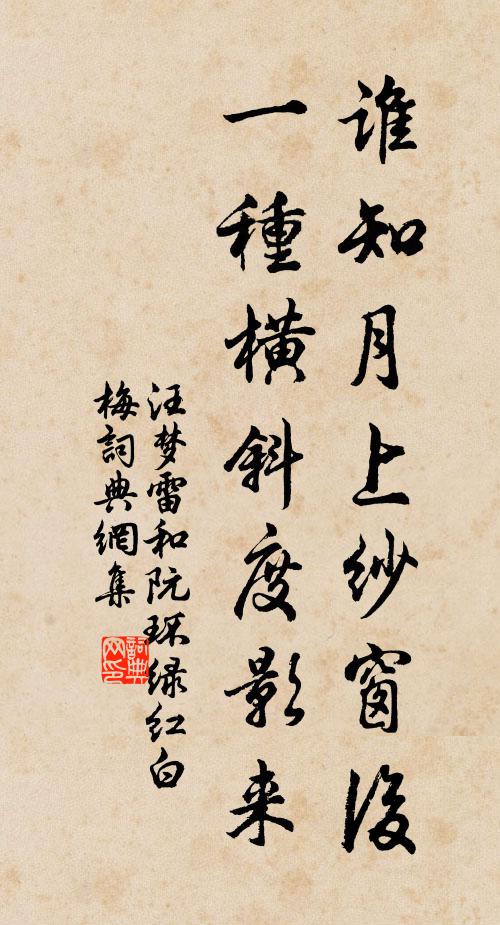 谁知月上纱窗后
一種横斜度影来
汪梦雷和阮琢绿红白
梅詞典網集
詞典网印